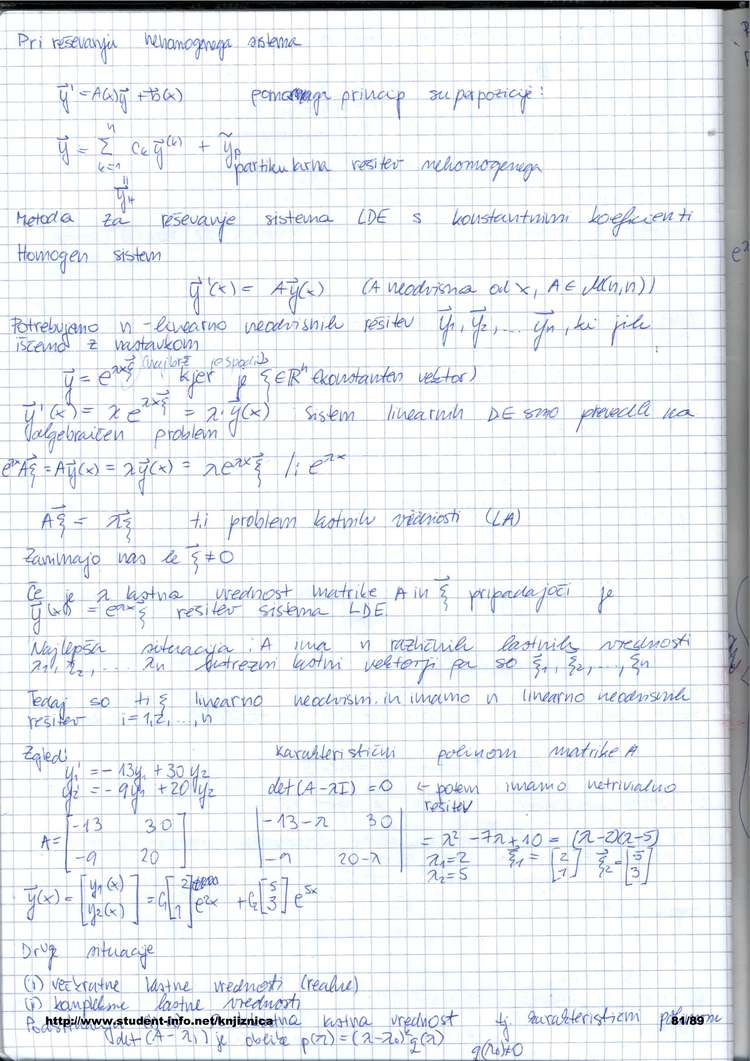 Pri reševanju nehomogenega sistema
y⃗' = A(x)y⃗ + b⃗(x) pomaga princip superpozicije:
y⃗ = Σ_{k=1}^{n} C_k y⃗^{(k)} + ỹ_p
partikularna rešitev nehomogenega
y⃗_H
Metoda za reševanje sistema LDE s konstantnimi koeficienti
Homogen sistem
y⃗'(x) = Ay⃗(x) (A neodvisna od x, A ∈ M(n,n))
Potrebujemo n-linearno neodvisnih rešitev y⃗₁, y⃗₂, ... y⃗n, ki jih
iščemo z nastavkom
y⃗ = e^{λx}ξ⃗ kjer je ξ ∈ ℝⁿ (konstanten vektor)
y⃗'(x) = λe^{λx}ξ⃗ = λ·y⃗(x) Sistem linearnih DE smo prevedli na
algebraičen problem
e^{λx}Aξ⃗ = Ay⃗(x) = λy⃗(x) = λe^{λx}ξ⃗ /: e^{λx}
Aξ⃗ = λξ⃗ t.i problem lastnih vrednosti (LA)
Zanimajo nas le ξ⃗ ≠ 0
Če je λ lastna vrednost matrike A in ξ⃗ pripadajoči je
y⃗(x) = e^{λx}ξ⃗ rešitev sistema LDE
Najlepša situacija: A ima n različnih lastnih vrednosti
λ₁, λ₂, ... λn ustrezni lastni vektorji pa so ξ⃗₁, ξ⃗₂, ..., ξ⃗n
Tedaj so ti ξ linearno neodvisni in imamo n linearno neodvisnih
rešitev i = 1,2, ..., n
Zgled: karakteristični polinom matrike A
y₁' = -13y₁ + 30y₂
y₂' = -9y₁ + 20y₂ det(A-λI) = 0 ← potem imamo netrivialno
rešitev
A = [-13 30; -9 20] |-13-λ 30; -9 20-λ| = λ² - 7λ + 10 = (λ-2)(λ-5)
λ₁=2 ξ⃗₁ = [2; 1] ξ⃗₂ = [5; 3]
λ₂=5
y⃗(x) = [y₁(x); y₂(x)] = C₁[2; 1]e^{2x} + C₂[5; 3]e^{5x}
Druge situacije
(i) večkratne lastne vrednosti (realne)
(ii) kompleksne lastne vrednosti
http://www.student-info.net/knjiznica lastna vrednost tj karakteristični 81/89
det(A-λI) je oblike p(λ) = (λ-λ₀)^k q(λ) q(λ₀)≠0